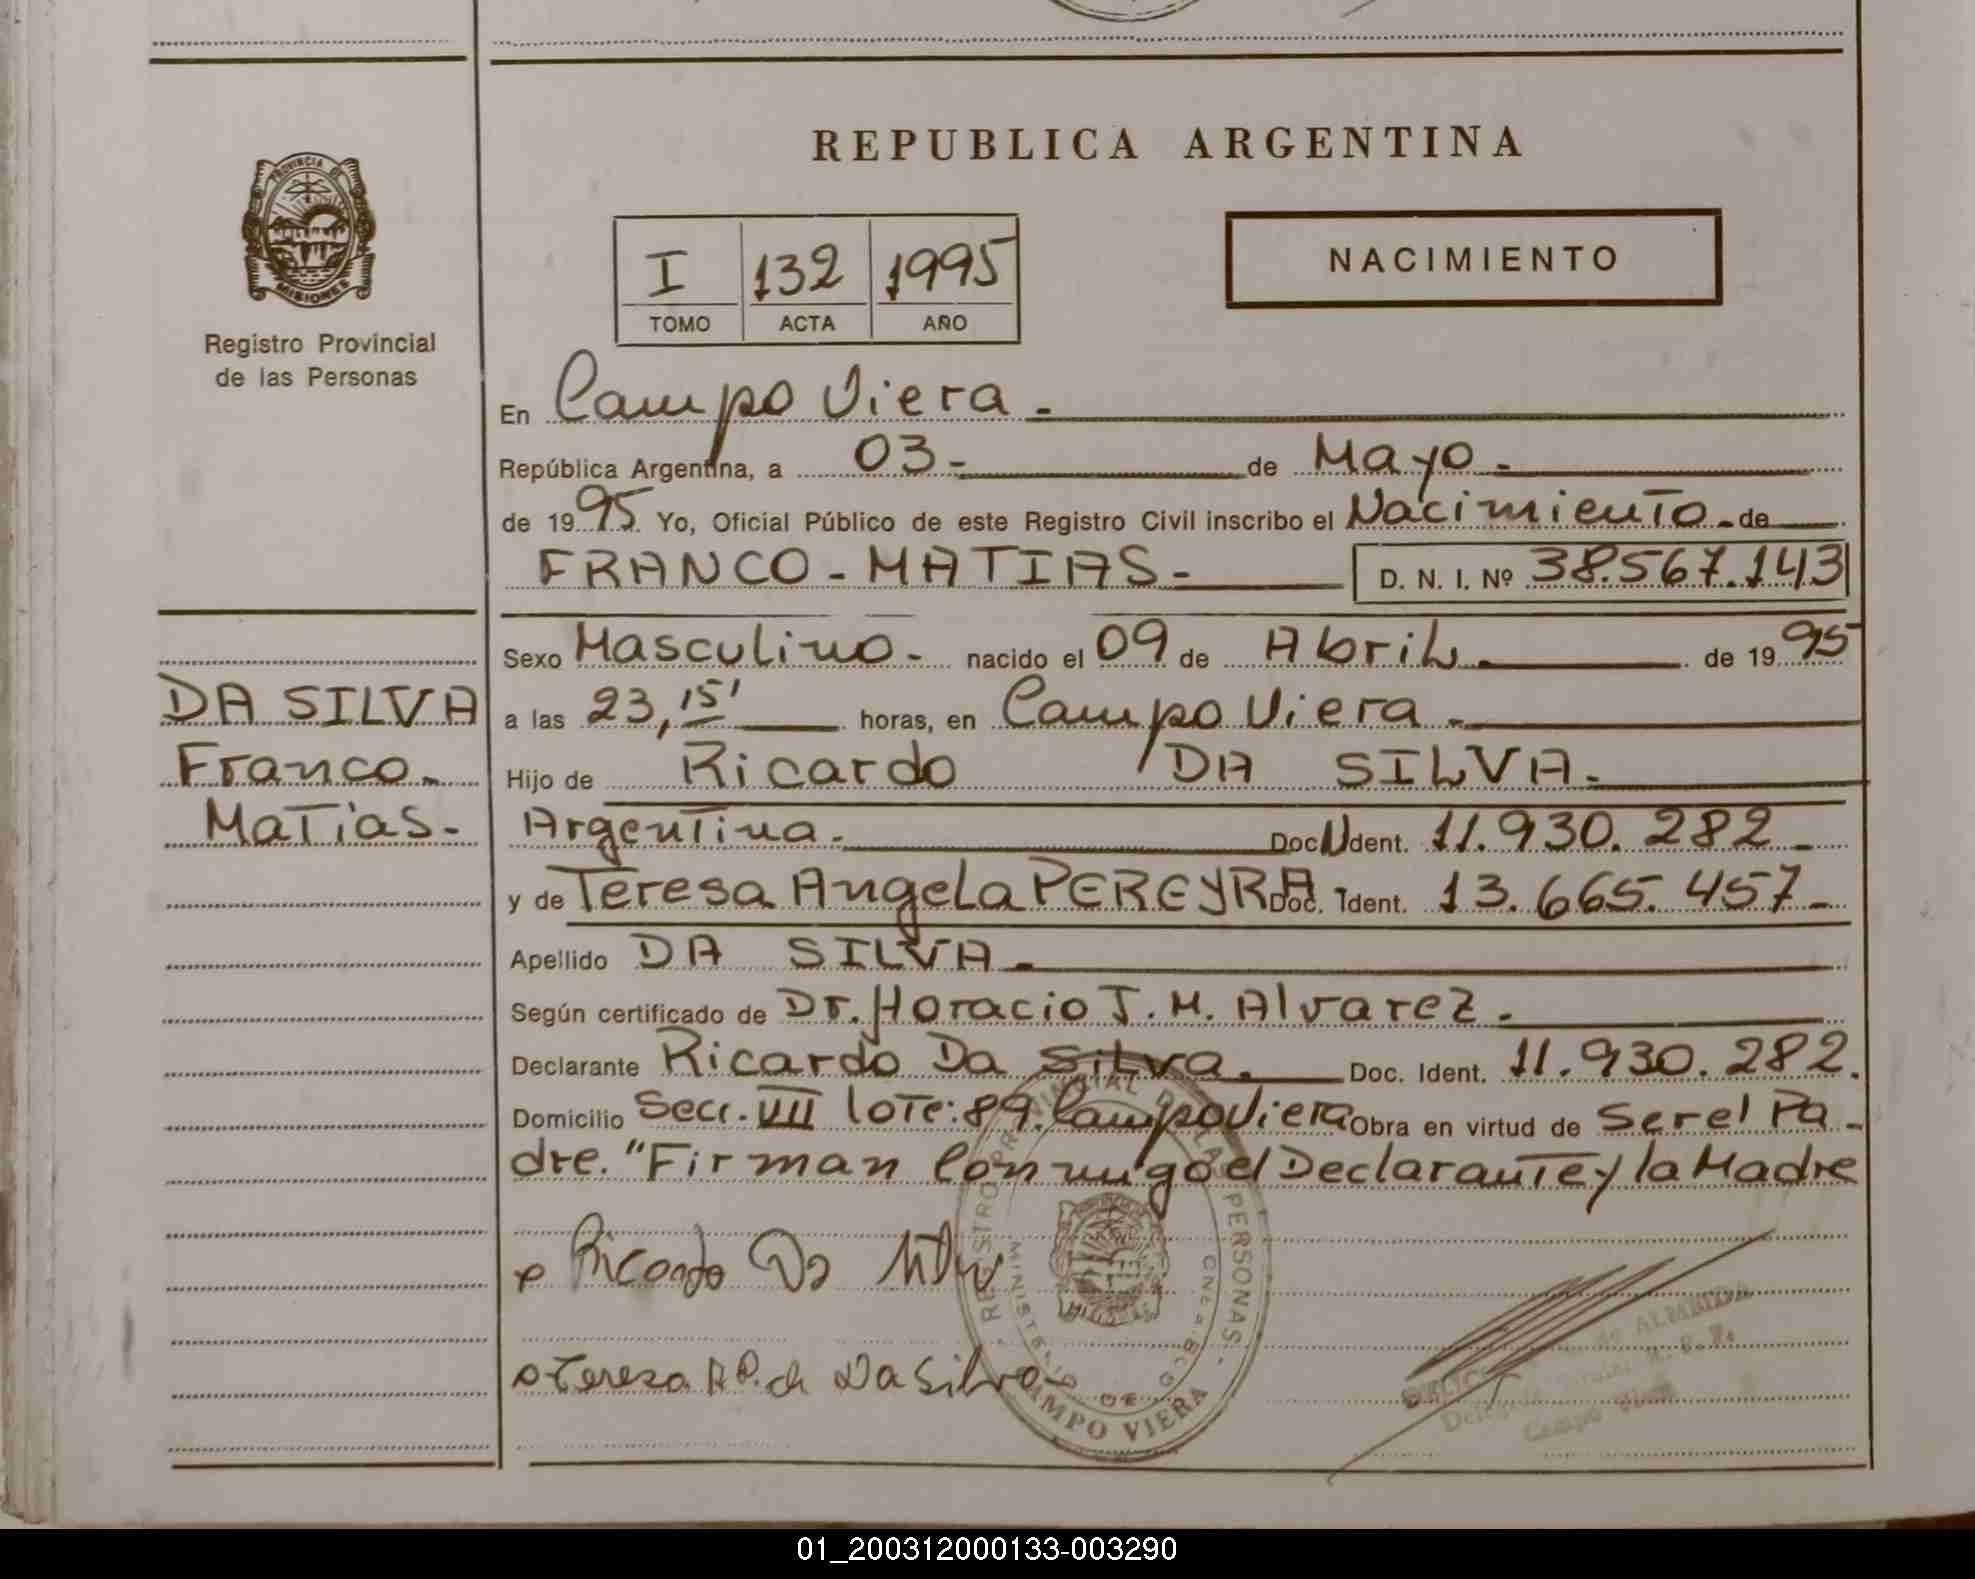 REPUBLICA ARGENTINA
PROVINCIA DE
MISIONES
Registro Provincial
de las Personas
I 132 1995
TOMO ACTA AÑO
NACIMIENTO
En Campo Viera.-
República Argentina, a 03- de Mayo-
de 1995 Yo, Oficial Público de este Registro Civil inscribo el Nacimiento - de
FRANCO-MATIAS- D. N. I. Nº 38.567.143
Sexo Masculino- nacido el 09 de Abril- de 1995
a las 23,15' horas, en Campo Viera-
Hijo de Ricardo DA SILVA-
Argentina.- Doc. Ident. 11.930.282-
y de Teresa Angela PEREYRA Doc. Ident. 13.665.457-
Apellido DA SILVA-
Según certificado de Dr. Horacio J. M. Alvarez.-
Declarante Ricardo Da Silva. Doc. Ident. 11.930.282.
Domicilio Secc. VIII lote: 89. Campo Viera Obra en virtud de Ser el Pa-
dre. "Firman Conmigo el Declarante y la Madre
DA SILVA
Franco-
Matias-
Ricardo Da
Teresa A P. de Da Silva
REGISTRO PROVINCIAL DE LAS PERSONAS
CAMPO VIERA
MISIONES
de ALMEIDA
Campo Viera
01_200312000133-003290